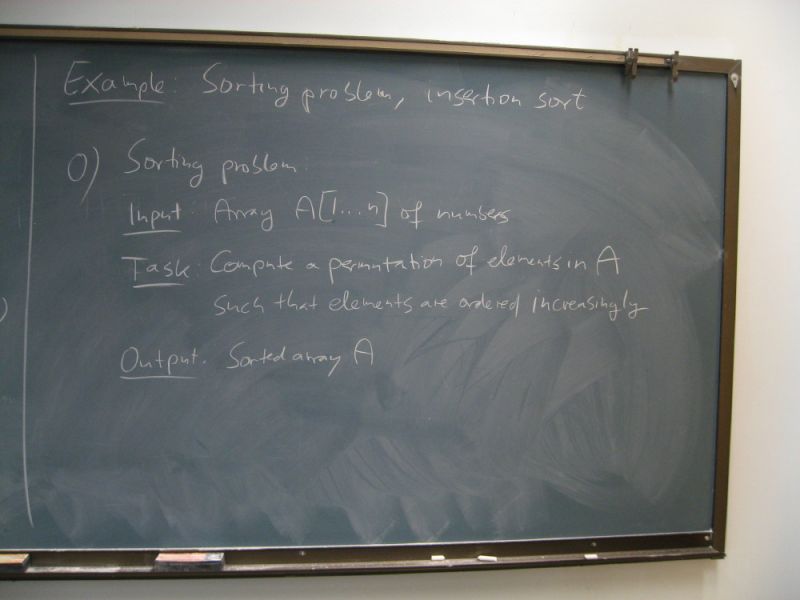 Example: Sorting problem, insertion sort
0) Sorting problem:
Input: Array A[1...n] of numbers
Task: Compute a permutation of elements in A
such that elements are ordered increasingly
Output: Sorted array A
)